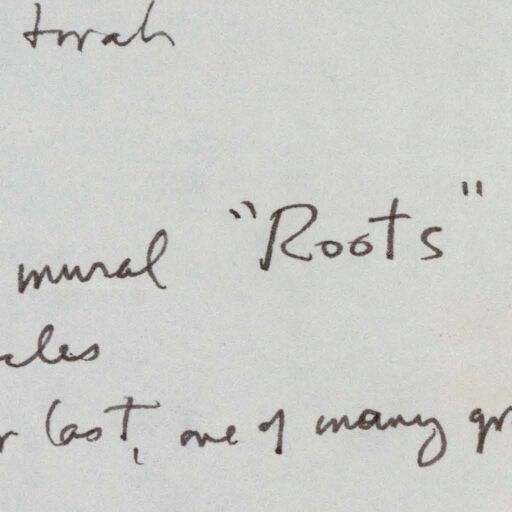 torah
mural "Roots"
last, one of many